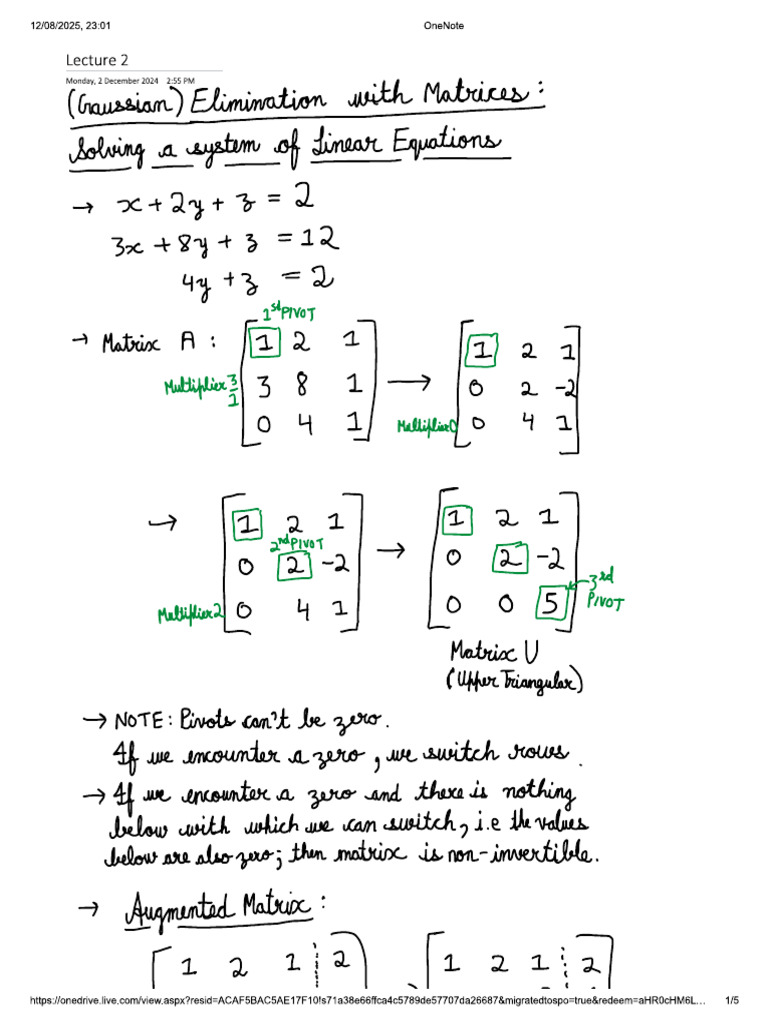 12/08/2025, 23:01 OneNote
Lecture 2
Monday, 2 December 2024 2:55 PM
(Gaussian) Elimination with Matrices:
Solving a system of Linear Equations
→ x + 2y + z = 2
3x + 8y + z = 12
4y + z = 2
1st PIVOT
→ Matrix A : [1 2 1 [1 2 1
Multiplier 3/1 3 8 1 → 0 2 -2
0 4 1] Multiplier 0 0 4 1]
→ [1 2 1 [1 2 1
2nd PIVOT
0 2 -2 → 0 2 -2
Multiplier 2 0 4 1] 0 0 5] ← 3rd PIVOT
Matrix U
(Upper Triangular)
→ NOTE: Pivots can't be zero.
If we encounter a zero, we switch rows.
→ If we encounter a zero and there is nothing
below with which we can switch, i.e the values
below are also zero; then matrix is non-invertible.
→ Augmented Matrix :
[1 2 1 ¦ 2] → [1 2 1 ¦ 2]
https://onedrive.live.com/view.aspx?resid=ACAF5BAC5AE17F10!s71a38e66ffca4c5789de57707da26687&migratedtospo=true&redeem=aHR0cHM6L… 1/5